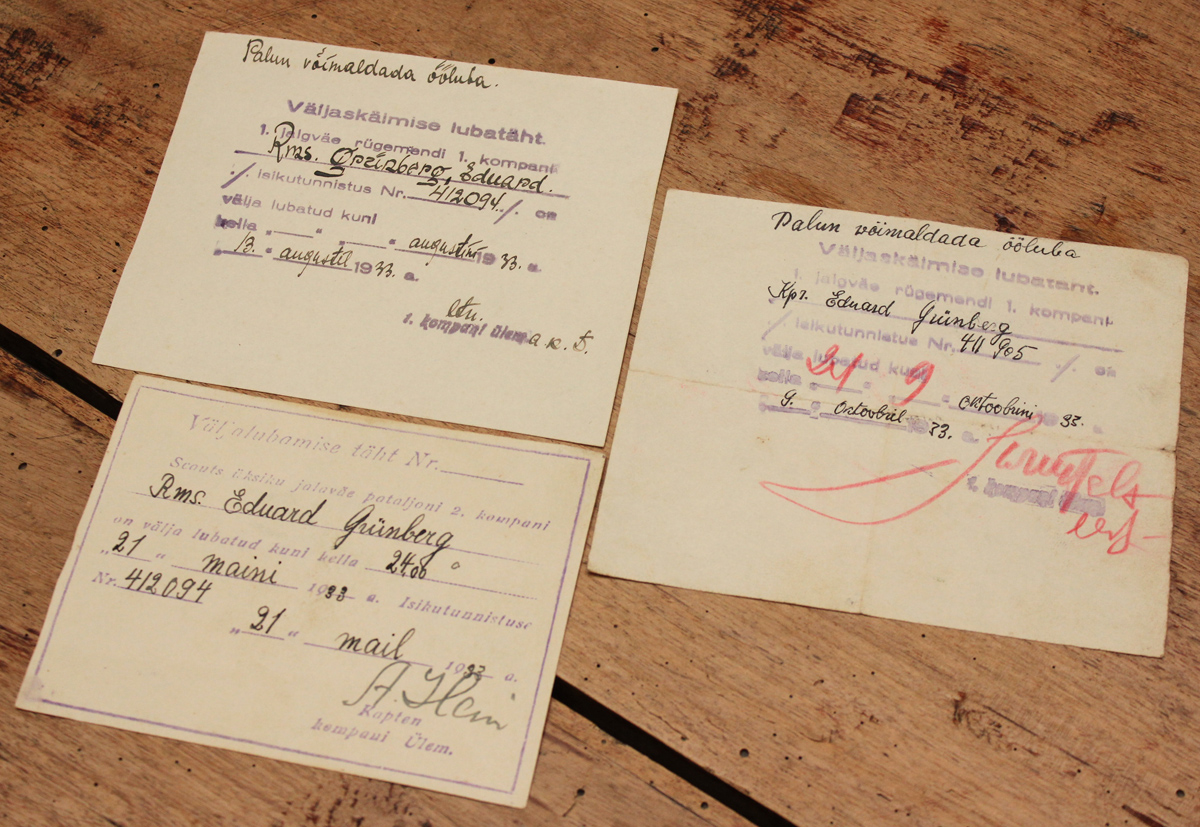 Palun võimaldada ööluba.
Väljaskäimise lubatäht.
1. jalgväe rügemendi 1. kompani
Rms. Grünberg, Eduard.
./. isikutunnistus Nr. 412094 ./. on
välja lubatud kuni
kella „ “ „ “ augustini 1933. a
„ 13. “ augustil 1933. a.
ltn.
1. kompani ülem a k. t.
Palun võimaldada ööluba
Väljaskäimise lubatäht.
1. jalgväe rügemendi 1. kompani
Kpr. Eduard Grünberg
./. isikutunnistus Nr. 411905 ./. on
välja lubatud kuni
kella „ 24 “ 9 oktoobrini 1933. a.
„ 9. “ oktoobril 1933. a.
1. kompani ülem
Väljalubamise täht Nr.
Scouts üksiku jalaväe pataljoni 2. kompani
Rms. Eduard Grünberg
on välja lubatud kuni kella 24.00
„21 “ maini 1933 a. Isikutunnistuse
Nr. 412094
„ 21 “ mail 1933 a.
Kapten
kompani Ülem.